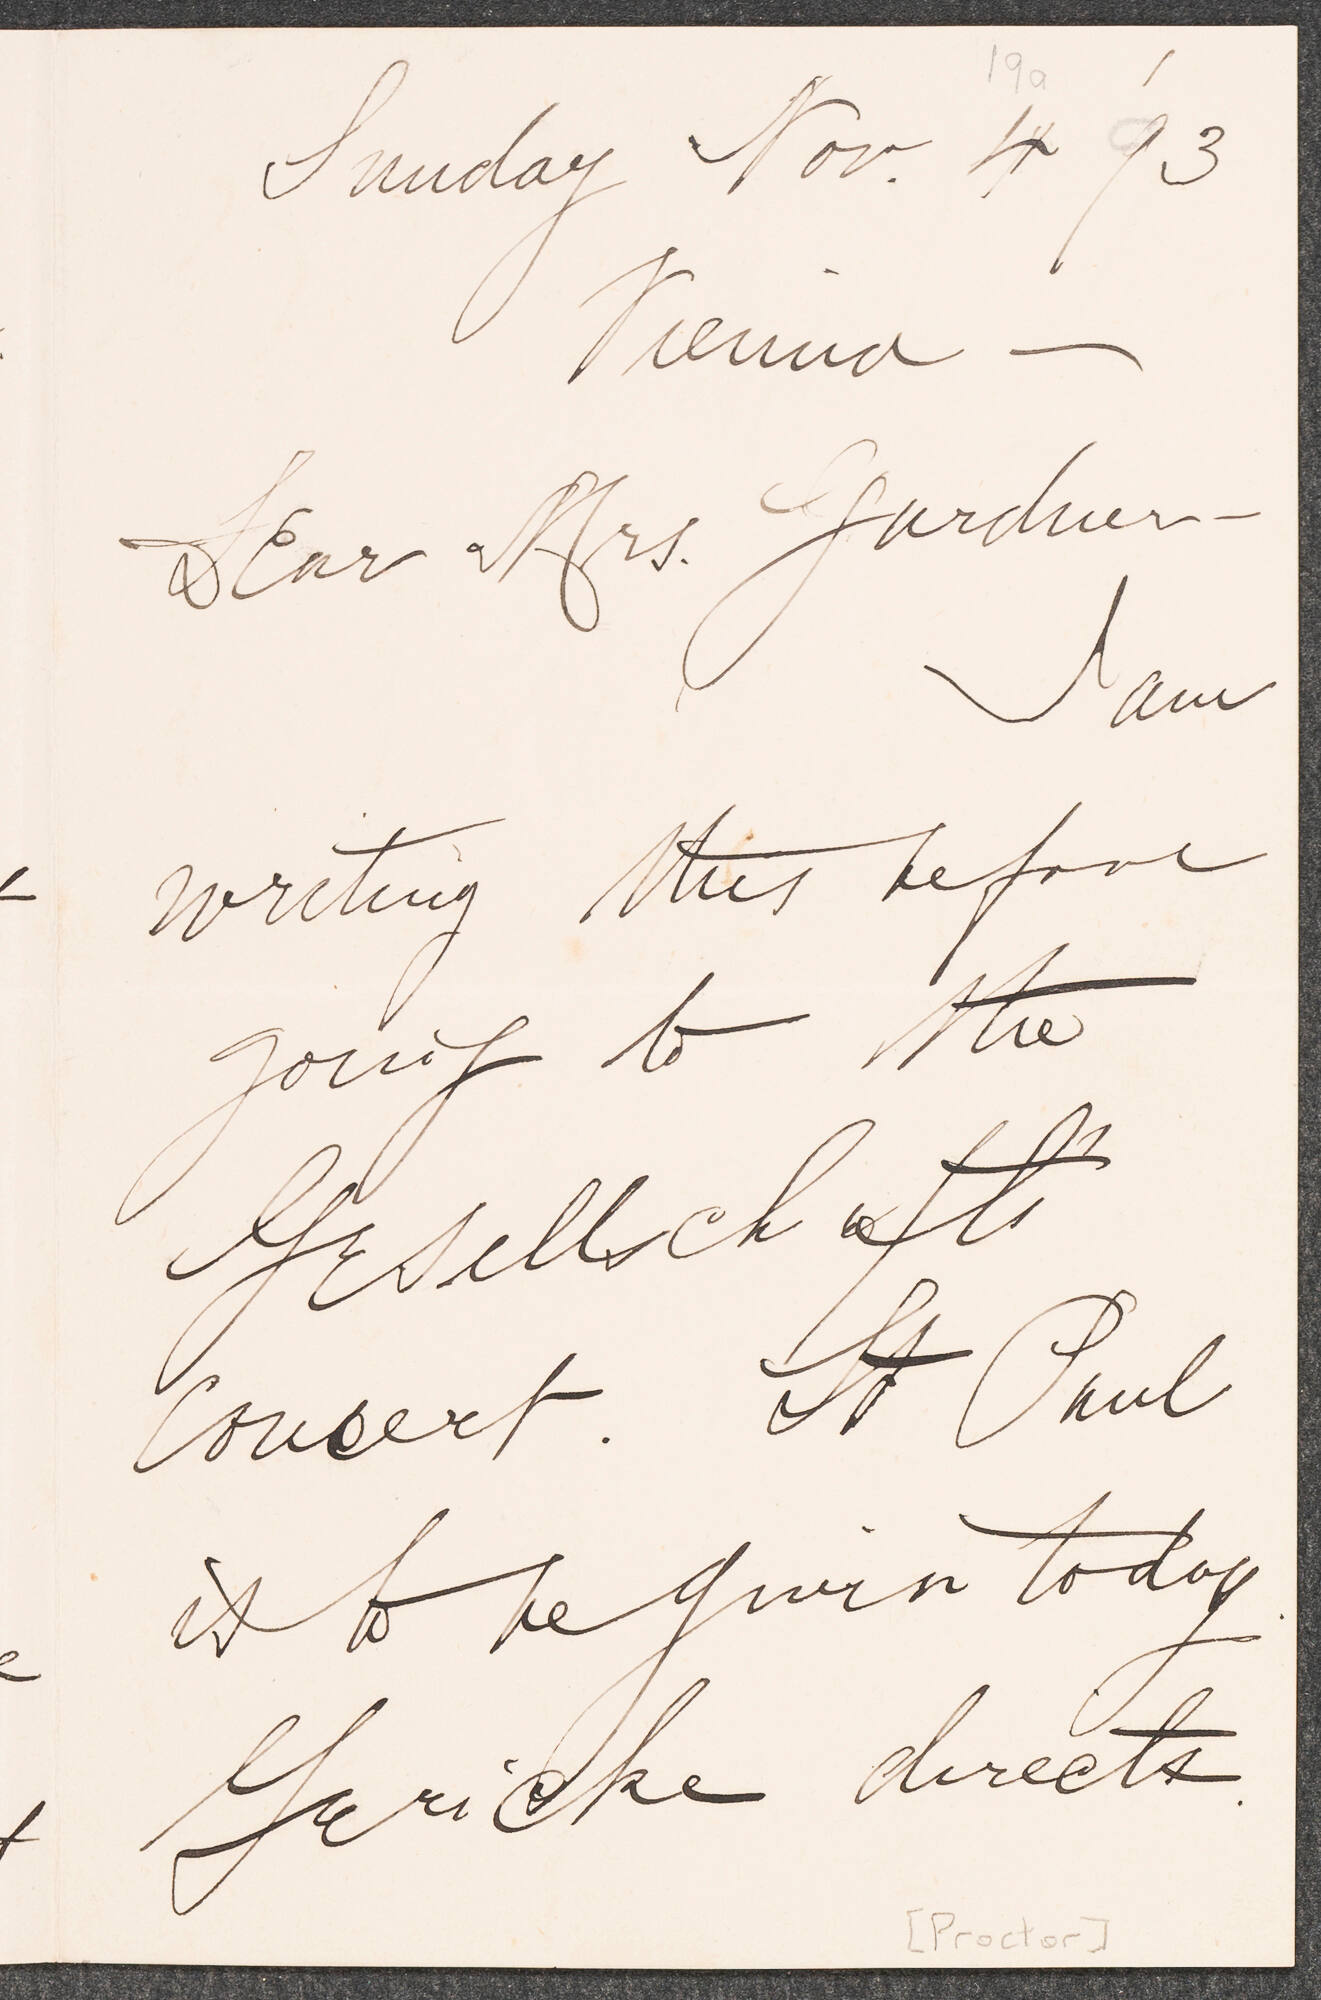 19a
Sunday Nov. 4 '93
Vienna —
Dear Mrs. Gardner —
I am
writing this before
going to the
Gesellschafts
Concert. St Paul
is to be given today.
Gericke directs.
[Proctor]